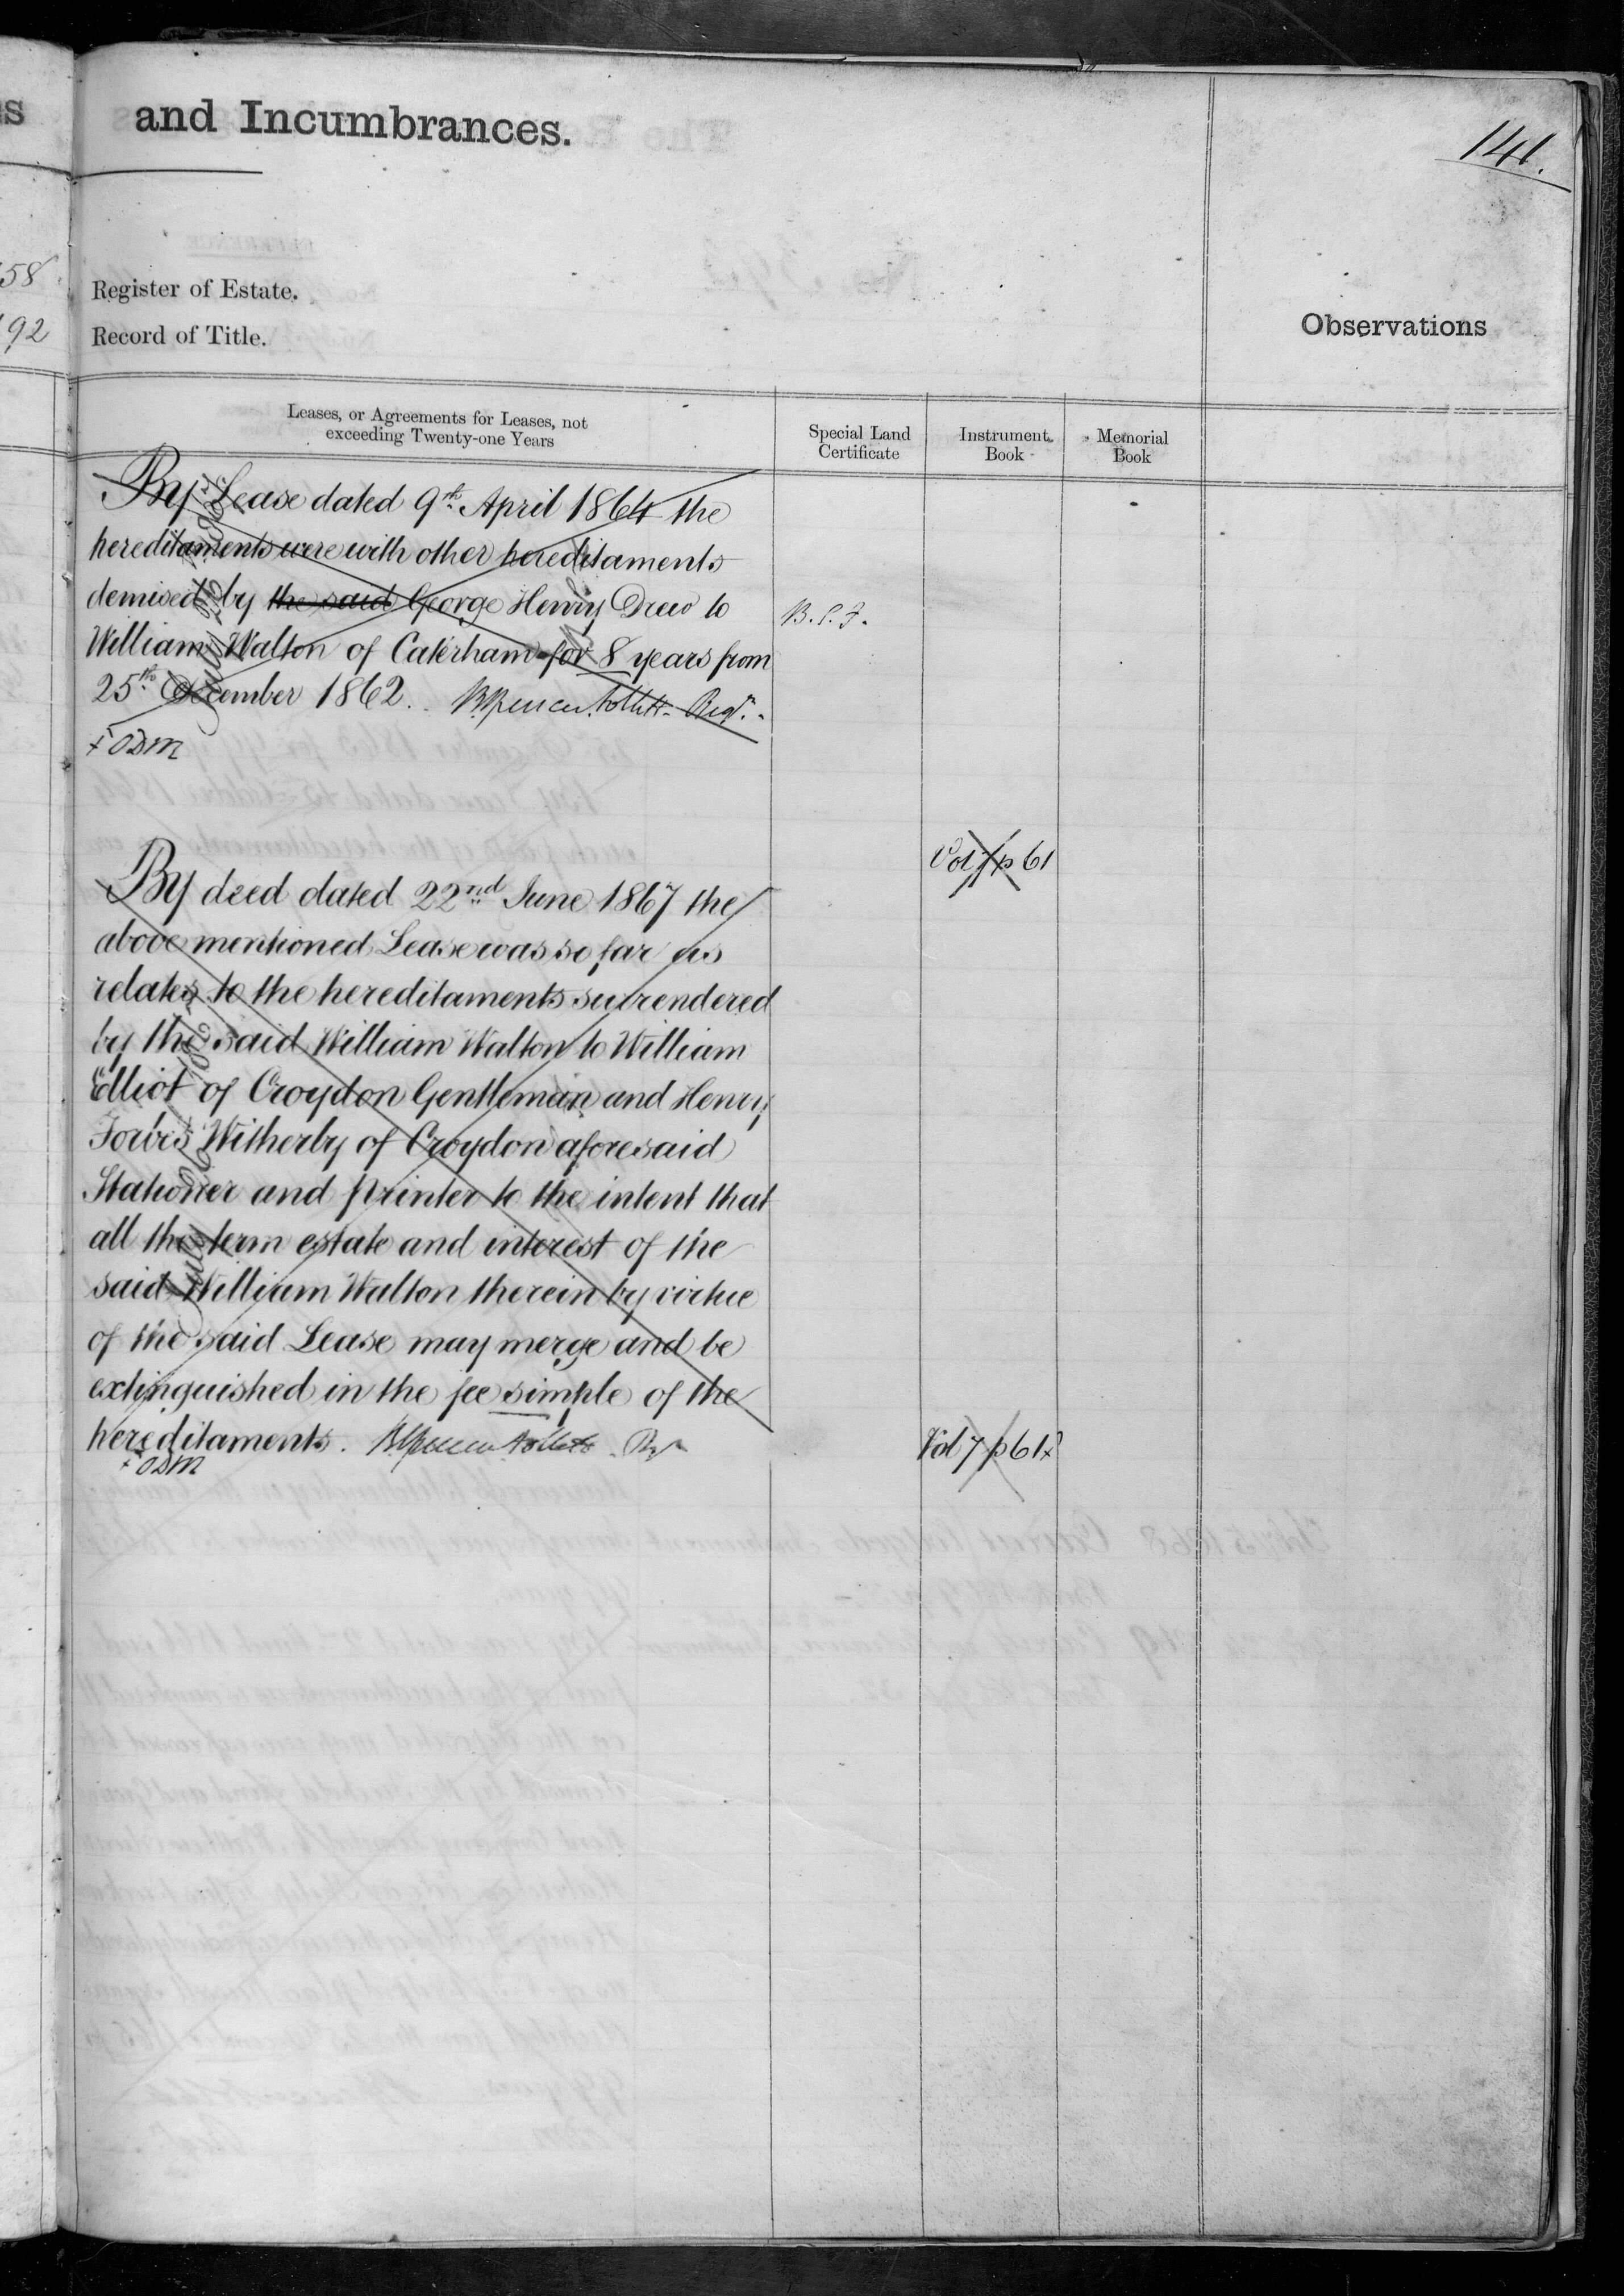 and Incumbrances.
141.
58
92
Register of Estate.
Record of Title.
Observations
Leases, or Agreements for Leases, not
exceeding Twenty-one Years
Special Land
Certificate
Instrument
Book
Memorial
Book
By Lease dated 9th April 1864 the
hereditaments were with other hereditaments
demised by the said George Henry Drew to
B.S.F.
William Walton of Caterham for 8 years from
25th December 1862. Regr.
+ ODM
Vol 7 p 61
By deed dated 22nd June 1867 the
above mentioned Lease was so far as
relates to the hereditaments surrendered
by the said William Walton to William
Elliot of Croydon Gentleman and Henry
Forbes Witherby of Croydon aforesaid
Stationer and printer to the intent that
all the term estate and interest of the
said William Walton therein by virtue
of the said Lease may merge and be
extinguished in the fee simple of the
hereditaments. Regr
+ ODM
Vol 7 p 61